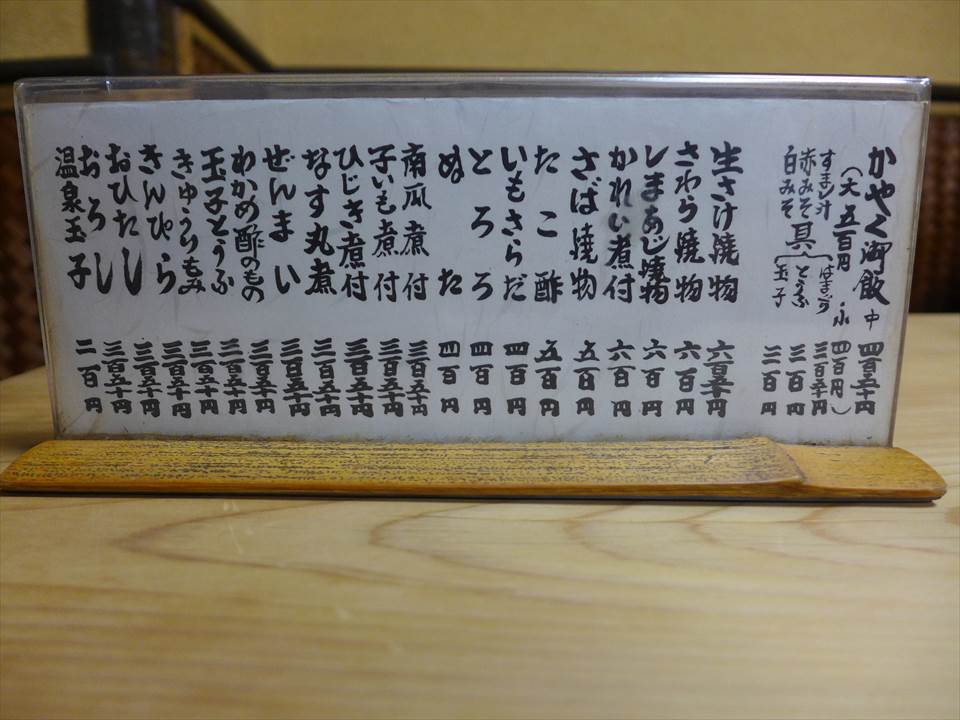 かやく御飯 中 四百五十円
(大 五百円・小 四百円)
すまし汁
赤みそ
白みそ
具
はまぐり 三百五十円
とうふ 三百円
玉子 二百円
生さけ焼物 六百五十円
さわら焼物 六百円
しまあじ焼物 六百円
かれい煮付 六百円
さば焼物 五百円
たこ酢 五百円
いもさらだ 四百円
とろろ 四百円
ぬた 四百円
南瓜煮付 三百五十円
子いも煮付 三百五十円
ひじき煮付 三百五十円
なす丸煮 三百五十円
ぜんまい 三百五十円
わかめ酢のもの 三百五十円
玉子とうふ 三百五十円
きゅうりもみ 三百五十円
きんぴら 三百五十円
おひたし 三百五十円
おろし 三百五十円
温泉玉子 二百円